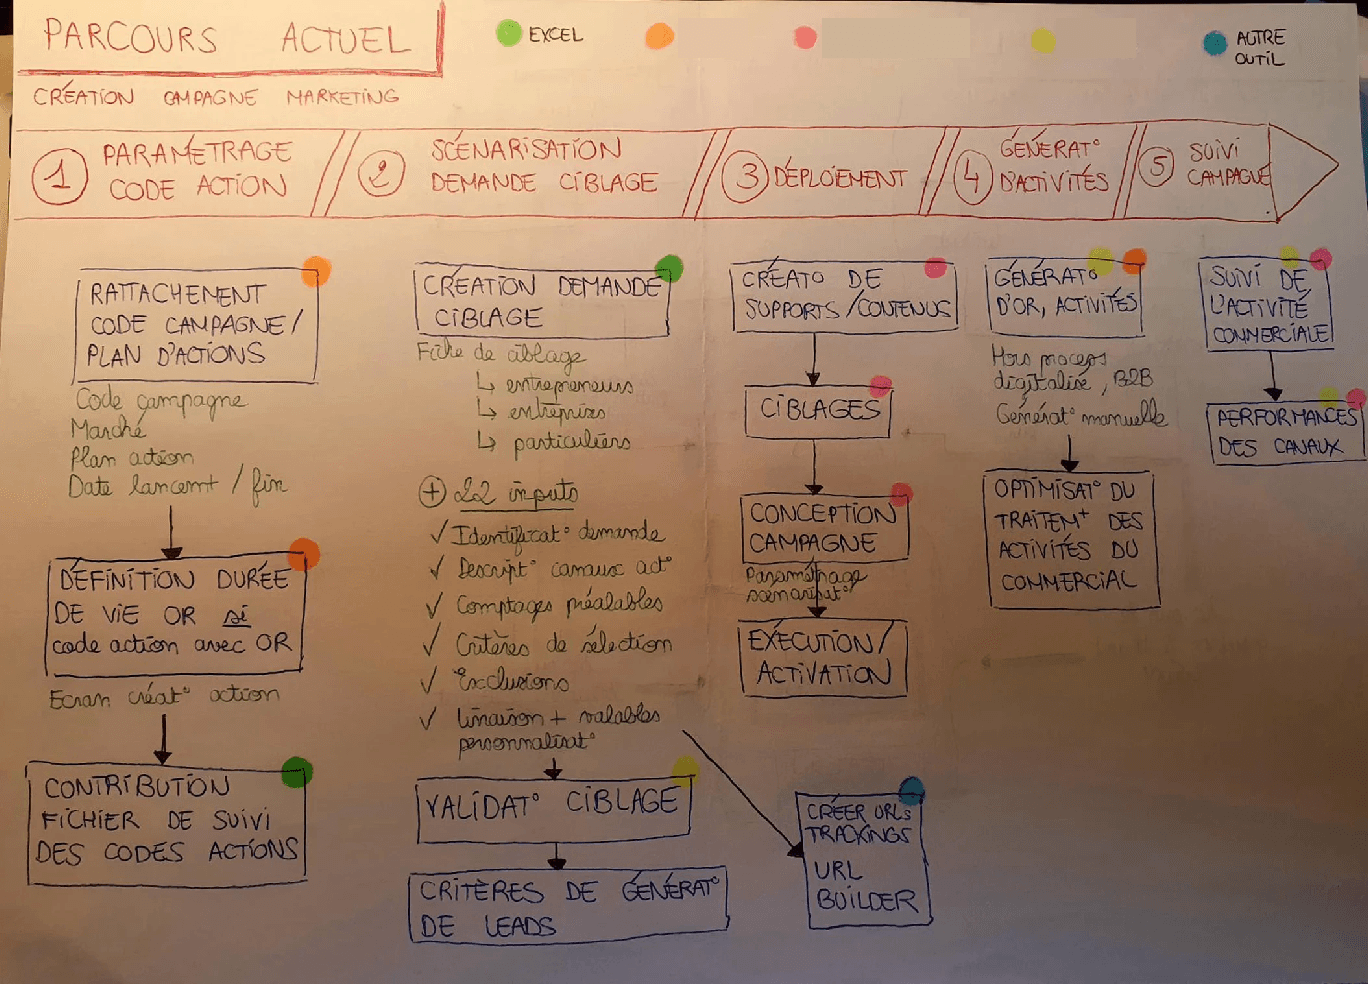 PARCOURS ACTUEL
EXCEL
AUTRE
OUTIL
CRÉATION CAMPAGNE MARKETING
1 PARAMÉTRAGE
CODE ACTION
2 SCÉNARISATION
DEMANDE CIBLAGE
3 DÉPLOIEMENT
4 GÉNÉRAT°
D'ACTIVITÉS
5 SUIVI
CAMPAGNE
RATTACHEMENT
CODE CAMPAGNE /
PLAN D'ACTIONS
Code campagne
Marché
Plan action
Date lancemt / fin
DÉFINITION DURÉE
DE VIE OR si
code action avec OR
Ecran créat° action
CONTRIBUTION
FICHIER DE SUIVI
DES CODES ACTIONS
CRÉATION DEMANDE
CIBLAGE
Fiche de ciblage
↳ entrepreneurs
↳ entreprises
↳ particuliers
+ 22 inputs
✓ Identificat° demande
✓ Descript° canaux act°
✓ Comptages préalables
✓ Critères de sélection
✓ Exclusions
✓ Livraison + valables
personnalisat°
VALIDAT° CIBLAGE
CRITÈRES DE GÉNÉRAT°
DE LEADS
CRÉAT° DE
SUPPORTS / CONTENUS
CIBLAGES
CONCEPTION
CAMPAGNE
Paramétrage
scénarisat°
EXÉCUTION /
ACTIVATION
CRÉER URLs
TRACKINGS
URL
BUILDER
GÉNÉRAT°
D'OR, ACTIVITÉS
Hors process
digitalisé, B2B
Générat° manuelle
OPTIMISAT° DU
TRAITEMt DES
ACTIVITÉS DU
COMMERCIAL
SUIVI DE
L'ACTIVITÉ
COMMERCIALE
PERFORMANCES
DES CANAUX